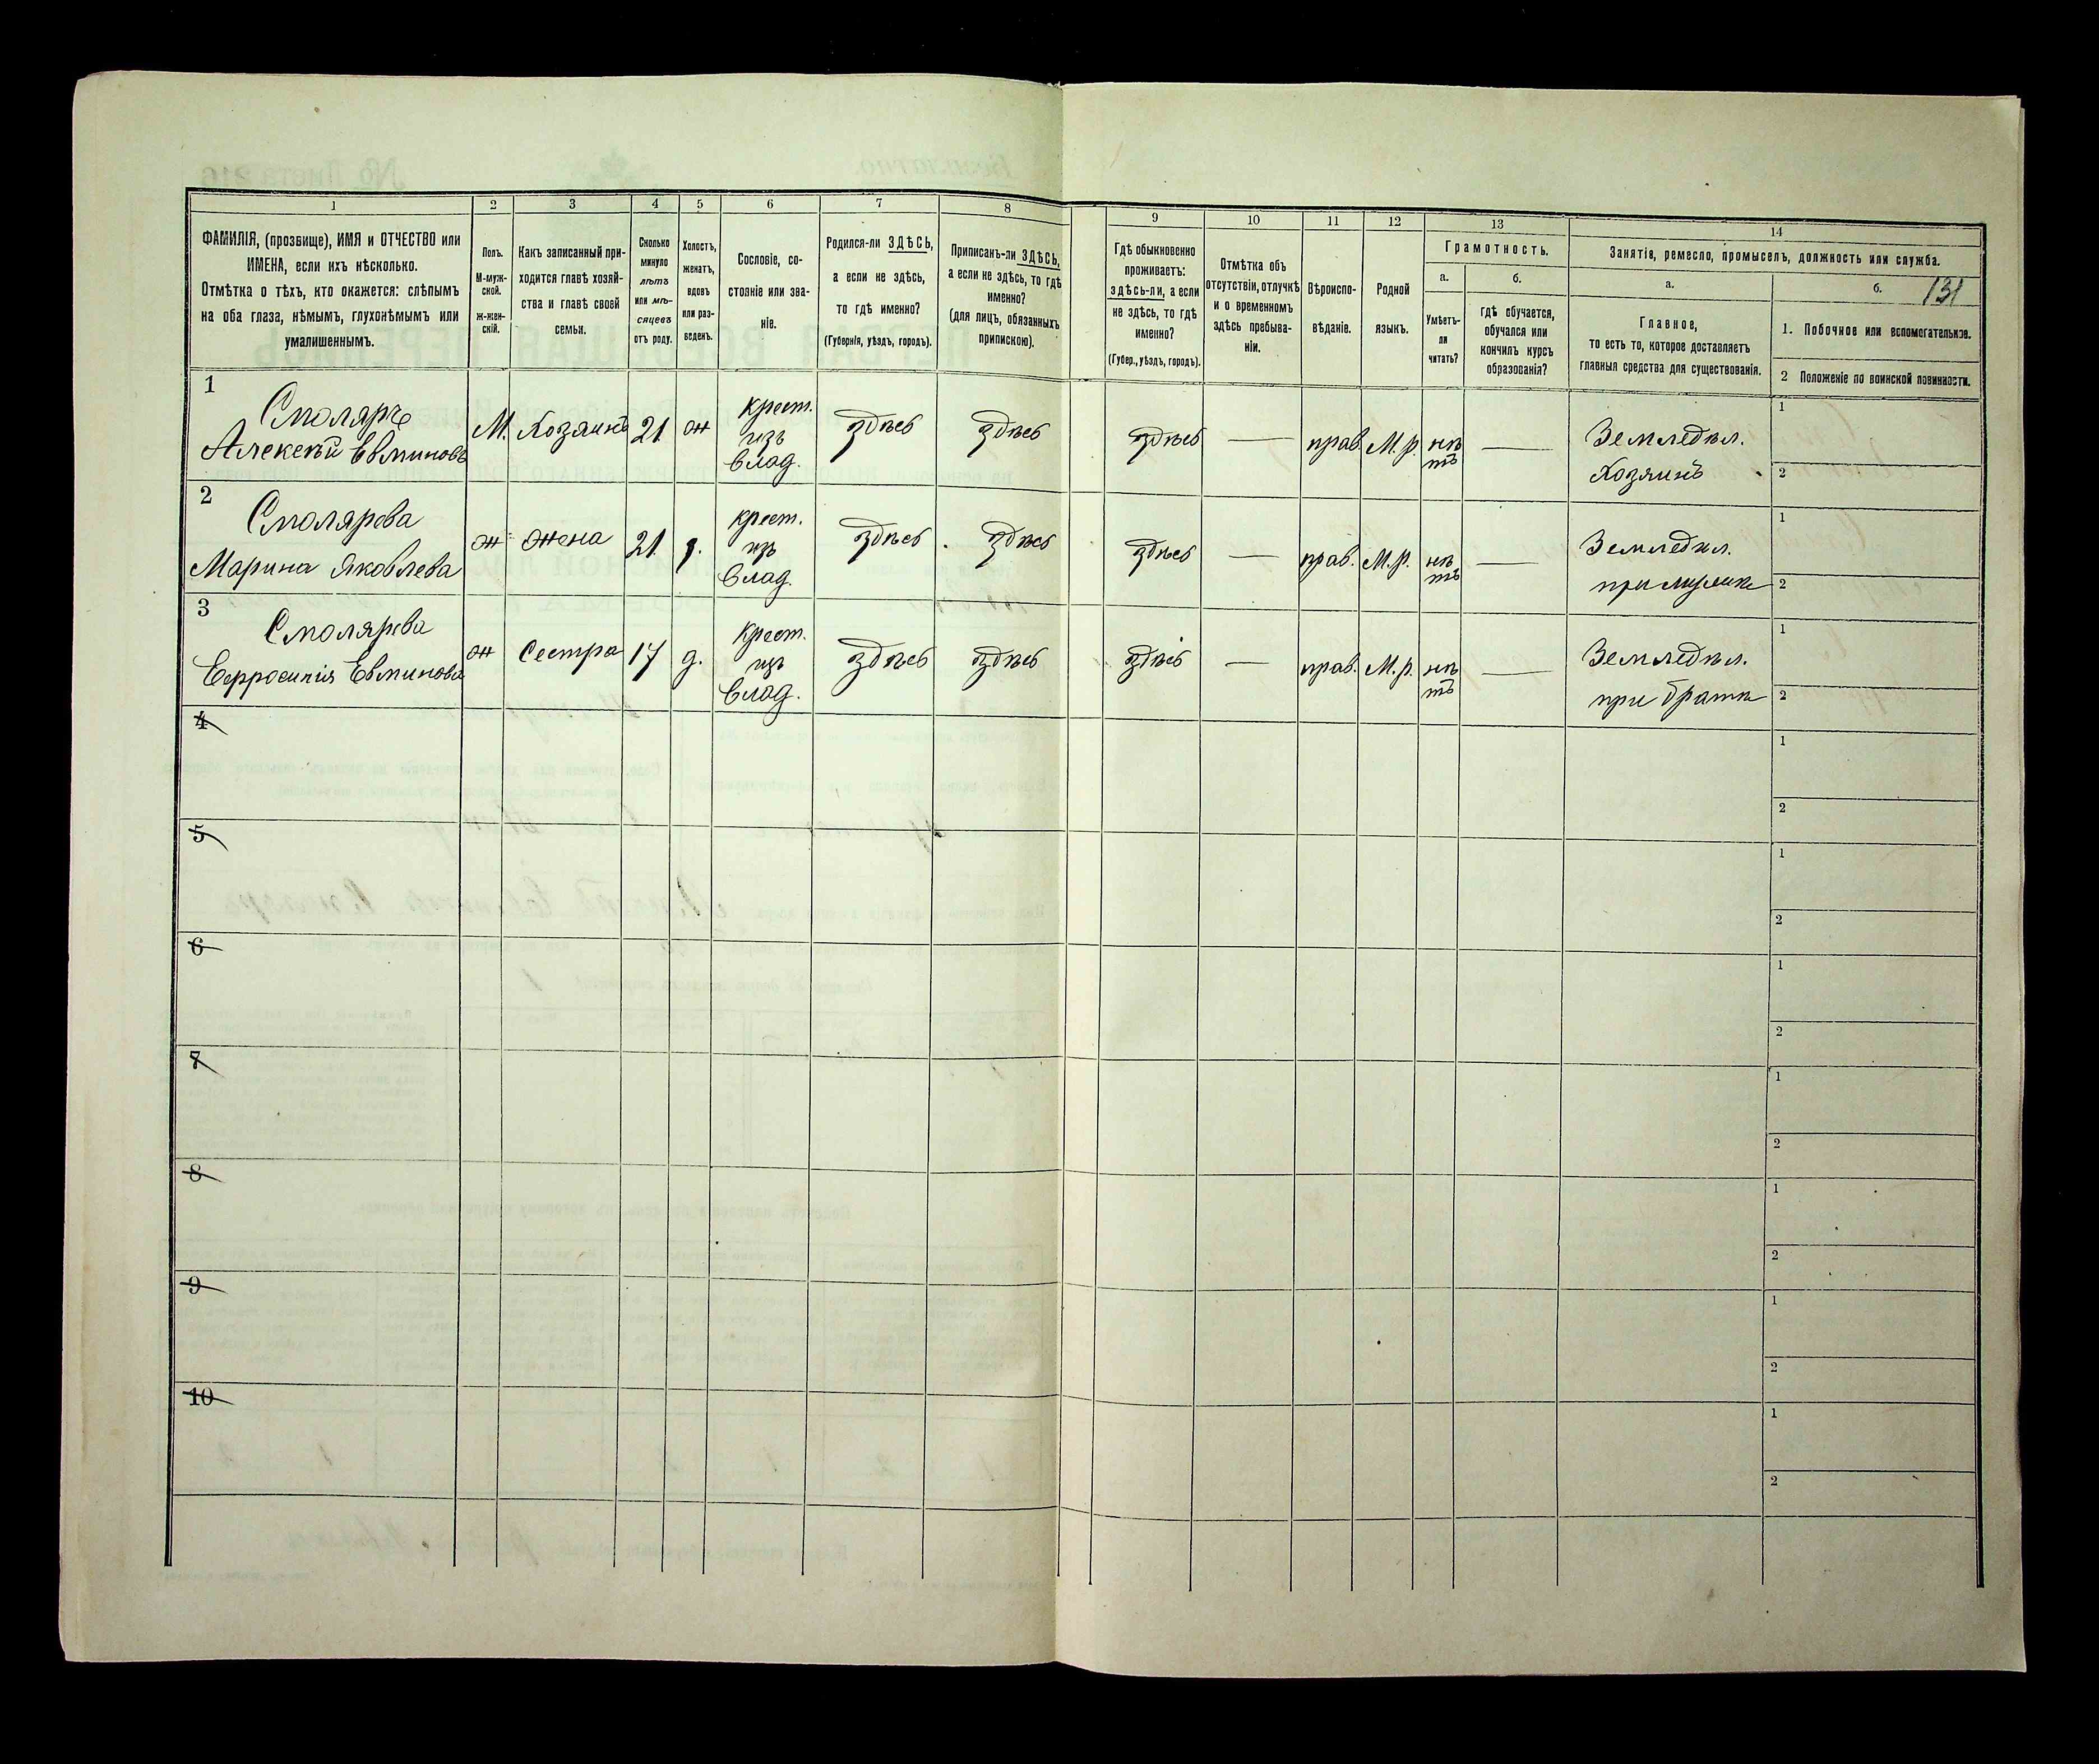 1 2 3 4 5 6 7 8 9 10 11 12 13 14
ФАМИЛІЯ, (прозвище), ИМЯ и ОТЧЕСТВО или
ИМЕНА, если ихъ нѣсколько.
Отмѣтка о тѣхъ, кто окажется: слѣпымъ
на оба глаза, нѣмымъ, глухонѣмымъ или
умалишеннымъ.
Полъ.
М-муж-
ской.
ж-жен-
скій.
Какъ записанный при-
ходится главѣ хозяй-
ства и главѣ своей
семьи.
Сколько
минуло
лѣтъ
или мѣ-
сяцевъ
отъ роду.
Холостъ,
женатъ,
вдовъ
или раз-
веденъ.
Сословіе, со-
стояніе или зва-
ніе.
Родился-ли ЗДѢСЬ,
а если не здѣсь,
то гдѣ именно?
(Губернія, уѣздъ, городъ).
Приписанъ-ли ЗДѢСЬ,
а если не здѣсь, то гдѣ
именно?
(для лицъ, обязанныхъ
припискою).
Гдѣ обыкновенно
проживаетъ:
здѣсь-ли, а если
не здѣсь, то гдѣ
именно?
(Губер., уѣздъ, городъ).
Отмѣтка объ
отсутствіи, отлучкѣ
и о временномъ
здѣсь пребыва-
ніи.
Вѣроиспо-
вѣданіе.
Родной
языкъ.
Грамотность.
а.
Умѣетъ-
ли
читать?
б.
гдѣ обучается,
обучался или
кончилъ курсъ
образованія?
Занятія, ремесло, промыселъ, должность или служба.
а.
Главное,
то есть то, которое доставляетъ
главныя средства для существованія.
б. 131
1. Побочное или вспомогательное.
2 Положеніе по воинской повинности.
1
Смоляръ
Алексѣй Евминовъ
М. Хозяинъ 21 ж
крест.
изъ
влад.
здѣсь здѣсь здѣсь — прав. М.р. нѣ
тъ
—
Земледѣл.
Хозяинъ
1
2
2
Смолярова
Марина Яковлева
ж жена 21
крест.
изъ
влад.
здѣсь здѣсь здѣсь — прав. М.р. нѣ
тъ
—
Земледѣл.
при мужѣ
1
2
3
Смолярова
Евфросинія Евминова
ж Сестра 17 д.
крест.
изъ
влад.
здѣсь здѣсь здѣсь — прав. М.р. нѣ
тъ
—
Земледѣл.
при братѣ
1
2
4
1
2
5
1
2
6
1
2
7
1
2
8
1
2
9
1
2
10
1
2